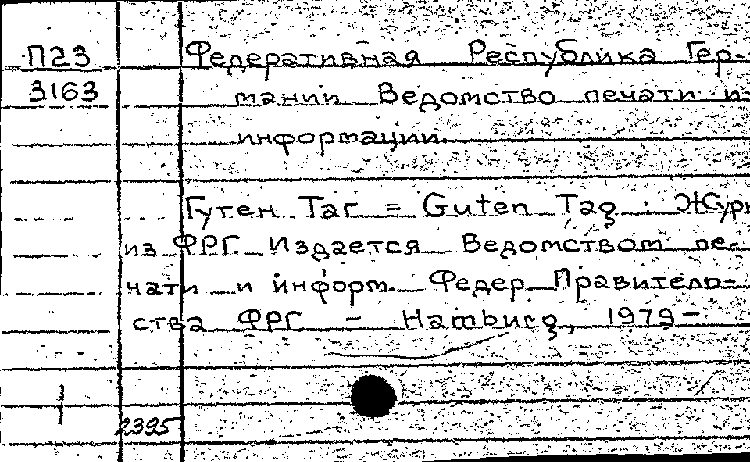 П23
3163
Федеративная Республика Гер-
мании Ведомство печати и
информации.
Гутен Таг = Guten Tag : Журн
из ФРГ. Издается Ведомством пе-
чати и информ. Федер. Правитель-
ства ФРГ – Hamburg, 1979–
2335